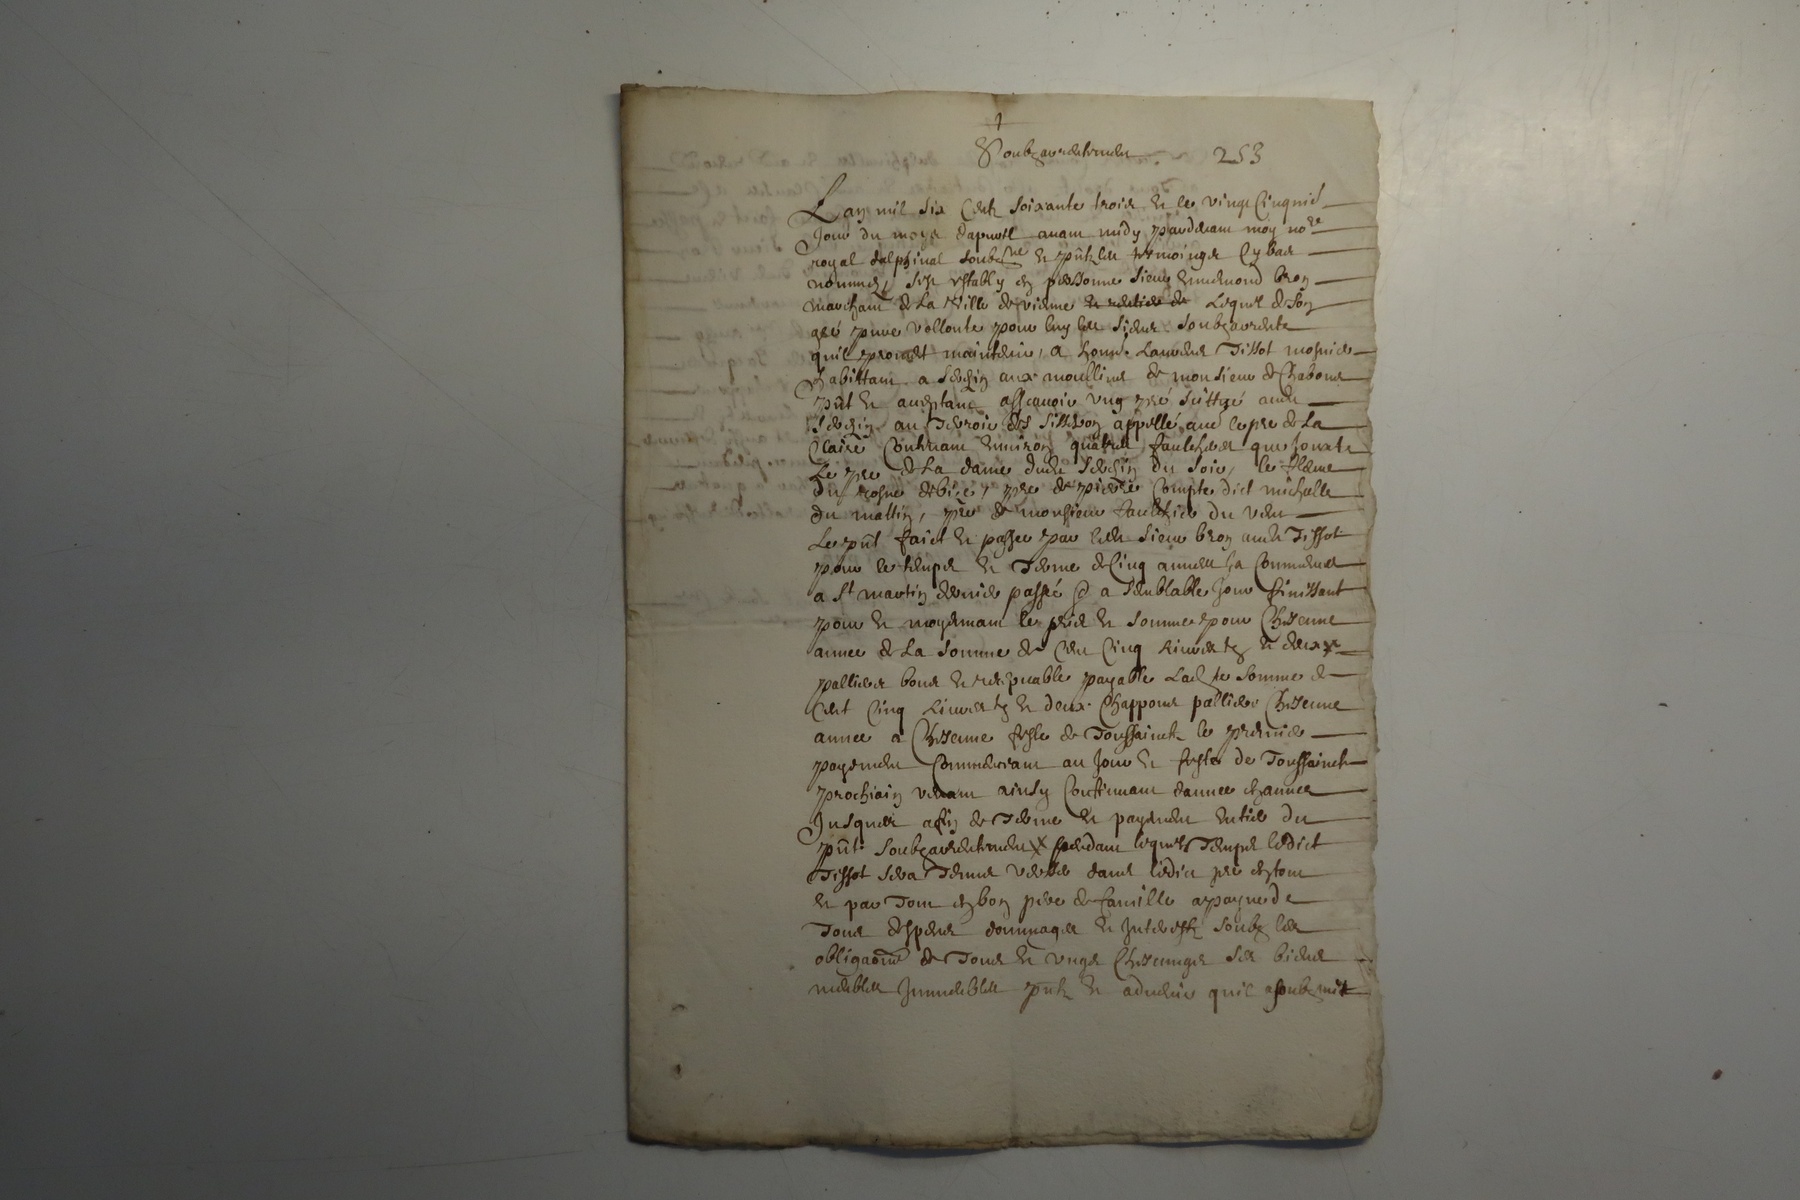 Soubzarrentement 253
Lan mil six centz soixante trois et le vingt cinquies
Jour du moys dapvril avant midy pardevant moy no.re
royal delphinal soubz.ne et pntz les tesmoingz cy bas
nommes, sest estably en personne sieur bron
marchant de la ville de vienne Lequel de son
gré pure vollonté pour luy les siens soubzarrente
quil promet maintenir, a honn. Laurens Tissot mosnier
habittant a aux moullins de monsieur de Chabons
pnt et aceptant assçavoir ung pré scittué aud.
au Terroir appellé aud. le pre de La
Claire Contenant environ quattre faulchees que jouxte
Le pre de La dame dud. du soir, le fleuve
du rosne de bize, pre de pierre Compte dict michalle
du mattin, pre de monsieur faulchier du vent
Le pnt faict et passé par led. sieur bron aud. Tissot
pour le temps et Terme de Cinq annees ja commencé
a S.t martin dernier passé et a semblable Jour finissant
pour et moyennant le prix et somme pour Chescune
annee de La somme de Cent Cinq Livres tz et deux
palliers bons et recepvable payable Lad.te somme de
Cent Cinq Livres tz et deux Chappons palliers Chescune
annee a Chescune feste de Toussainctz le premier
payement Commencant au Jour et feste de Toussainctz
prochain venant ainsy Continuant dannee en annee
Jusques a fin de Terme et payement entier du
pnt soubzarrentement pendant lequel Temps ledict
Tissot sera Tenu dans ledict pre en tout
et par Tout en bon pere de famille a payne de
Tous despens dommages et Interestz soubz les
obligaons de Tous et ungs Chescungs ses biens
meubles Immeubles pntz et advenir quil a soubzmit